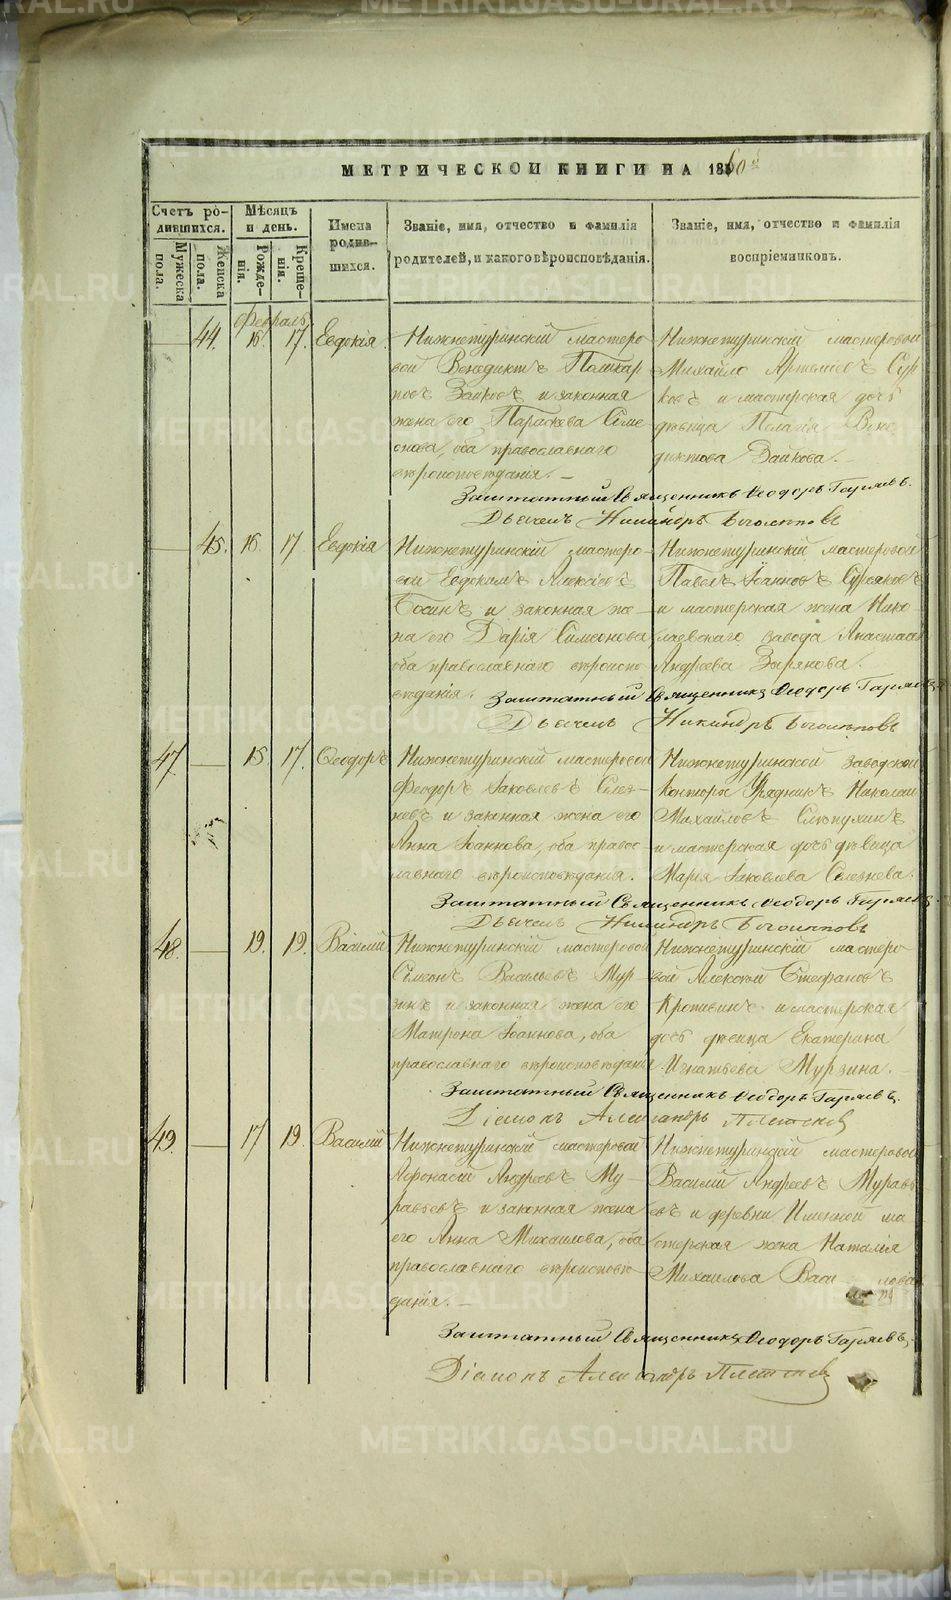 METRIKI.GASO-URAL.RU
МЕТРИЧЕСКОЙ КНИГИ НА 1860й
Счетъ ро-
дившихся.
Мужеска
пола.
Женска
пола.
Мѣсяцъ
и день.
Рожде-
нія.
Креще-
нія.
Имена
родив-
шихся.
Званіе, имя, отчество и фамилія
родителей, и какого вѣроисповѣданія.
Званіе, имя, отчество и фамилія
воспріемниковъ.
Февраль
44. 16. 17. Евдокія.
Нижнетуринскій мастеро-
вой Венедиктъ Поликар
повъ Зайковъ и законная
жена его Параскева Симе
онова, оба православнаго
вѣроисповѣданія. —
Нижнетуринскій мастеровой
Михайло Артемьевъ Сур
ковъ и мастерская дочь
дѣвица Пелагія Вене
диктова Зайкова. —
Заштатный Священникъ Ѳеодоръ Гаряевъ.
Дьячекъ Никандръ Боголѣповъ
45. 16. 17. Евдокія
Нижнетуринскій мастеро-
вой Евдокимъ Алексѣевъ
и законная же-
на его Дарія Симеонова
оба православнаго вѣроиспо-
вѣданія.
Нижнетуринскій мастеровой
Павелъ Іоанновъ
и мастерская жена Нико-
лаевскаго завода Анастасія
Андреева Зырянова.
Заштатный Священникъ Ѳеодоръ Гаряевъ
Дьячекъ Никандръ Боголѣповъ
47. 15. 17. Ѳеодоръ
Нижнетуринскій мастеровой
Феодоръ Іаковлевъ Селез-
невъ и законная жена его
Анна Іоаннова, оба право-
славнаго вѣроисповѣданія.
Нижнетуринской заводской
конторы Урядникъ Николай
Михайловъ Слѣпухинъ
и мастерская дочь дѣвица
Марія Іаковлева Селезнева.
Заштатный Священникъ Ѳеодоръ Гаряевъ
Дьячекъ Никандръ Боголѣповъ
48. 19. 19. Василій
Нижнетуринскій мастеровой
Симеонъ Васильевъ Мур-
зинъ и законная жена его
Матрона Іоаннова, оба
православнаго вѣроисповѣданія
Нижнетуринскій мастеро-
вой Алексѣй Стефановъ
Кропивинъ и мастерская
дочь дѣвица Екатерина
Игнатьева Мурзина.
Заштатный Священникъ Ѳеодоръ Гаряевъ.
Діаконъ Александръ
49. 17 19. Василій
Нижнетуринскій мастеровой
Афонасій Андреевъ Му-
равьевъ и законная жена
его Анна Михаилова, оба
православнаго вѣроисповѣ-
данія. —
Нижнетуринскій мастеровой
Василій Андреевъ Муравь
евъ и деревни Именной ма
стерская жена Наталія
Михаилова
Заштатный Священникъ Ѳеодоръ Гаряевъ.
Діаконъ Александръ